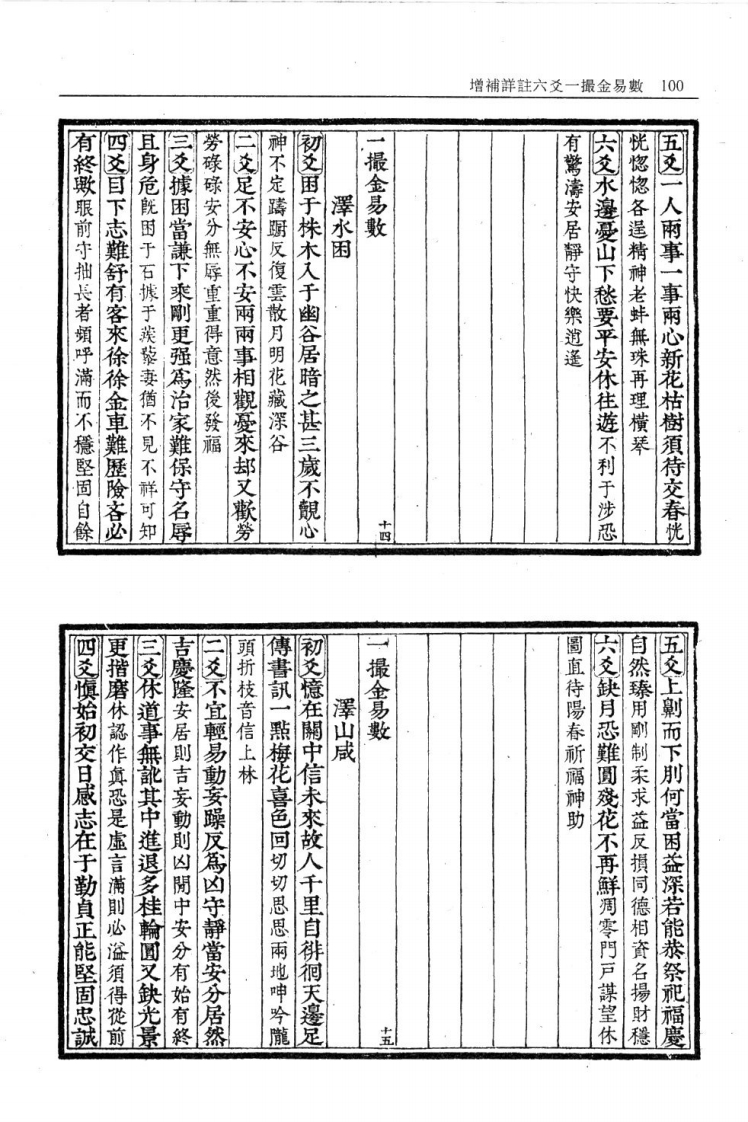 增補詳註六爻一撮金易數　100
五爻一人兩事一事兩心新花枯樹須待交春恍
恍惚惚各逞精神老蚌無珠再理橫琴
六爻水邊憂山下愁要平安休往遊不利于涉恐
有驚濤安居靜守快樂逍遙
一撮金易數　十四
澤水困
初爻困于株木入于幽谷居暗之甚三歲不覿心
神不定躊躕反復雲散月明花藏深谷
二爻足不安心不安兩兩事相觀憂來却又歡勞
勞碌碌安分無辱重重得意然後發福
三爻據困當謙下乘剛更强爲治家難保守名辱
且身危旣困于石據于蒺藜妻猶不見不祥可知
四爻目下志難舒有客來徐徐金車難歷險吝必
有終歟眼前守拙長者頻呼滿而不穩堅固自餘
五爻上劓而下刖何當困益深若能恭祭祀福慶
自然臻用剛制柔求益反損同德相資名揚財穩
六爻缺月恐難圓殘花不再鮮凋零門戸謀望休
圖直待陽春祈福神助
一撮金易數　十五
澤山咸
初爻憶在關中信未來故人千里自徘徊天邊足
傳書訊一點梅花喜色回切切思思兩地呻吟隴
頭折枝音信上林
二爻不宜輕易動妄躁反爲凶守靜當安分居然
吉慶隆安居則吉妄動則凶閒中安分有始有終
三爻休道事無訛其中進退多桂輪圓又缺光景
更揩磨休認作眞恐是虛言滿則必溢須得從前
四爻愼始初交日感志在于勤貞正能堅固忠誠